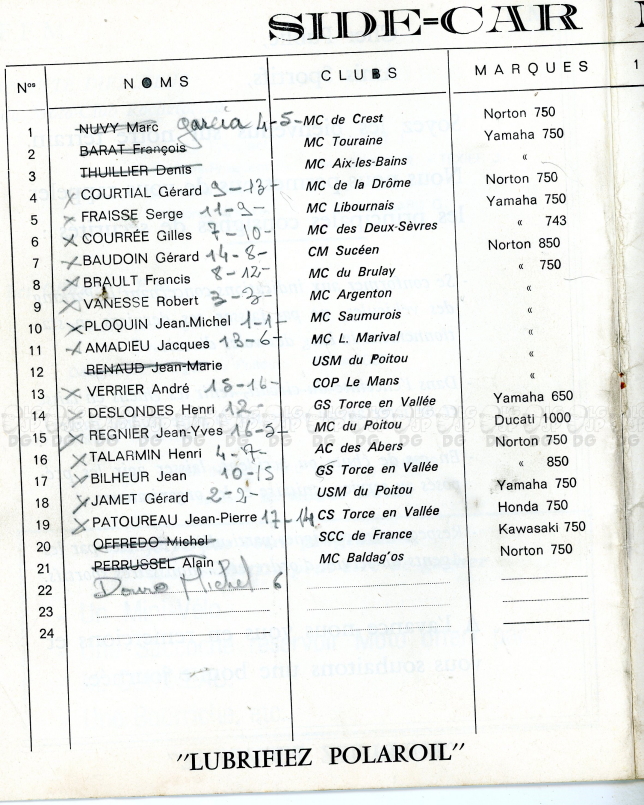 SIDE=CAR
Nos NOMS CLUBS MARQUES 1
1 NUVY Marc garcia 4-5- MC de Crest Norton 750
2 BARAT François MC Touraine Yamaha 750
3 THUILLIER Denis MC Aix-les-Bains «
4 × COURTIAL Gérard 9-13- MC de la Drôme Norton 750
5 × FRAISSE Serge 11-9- MC Libournais Yamaha 750
6 × COURRÉE Gilles 7-10- MC des Deux-Sèvres « 743
7 × BAUDOIN Gérard 14-8- CM Sucéen Norton 850
8 × BRAULT Francis 8-12- MC du Brulay « 750
9 × VANESSE Robert 3-3- MC Argenton «
10 × PLOQUIN Jean-Michel 1-1- MC Saumurois «
11 × AMADIEU Jacques 13-6- MC L. Marival «
12 RENAUD Jean-Marie USM du Poitou «
13 × VERRIER André 15-16- COP Le Mans «
14 × DESLONDES Henri 12- GS Torce en Vallée Yamaha 650
15 × REGNIER Jean-Yves 16-5- MC du Poitou Ducati 1000
16 × TALARMIN Henri 4-7- AC des Abers Norton 750
17 × BILHEUR Jean 10-15 GS Torce en Vallée « 850
18 × JAMET Gérard 2-2- USM du Poitou Yamaha 750
19 × PATOUREAU Jean-Pierre 17-14 CS Torce en Vallée Honda 750
20 OFFREDO Michel SCC de France Kawasaki 750
21 PERRUSSEL Alain MC Baldag'os Norton 750
22 Michel 6
23
24
"LUBRIFIEZ POLAROIL"